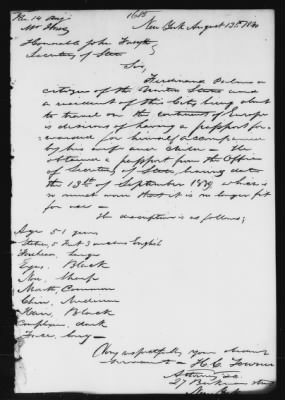 New York August 13th 1840
Honorable John Forsyth
Secretary of State
Sir,
Ferdinand Palmo a
citizen of the United States and
a resident of this City being about
to travel on the continent of Europe
is desirous of having a passport for-
warded for himself accompanied
by his wife and child — He
obtained a passport from the Office
of Secretary of State bearing date
the 13th of September which is
so much worn that it is no longer fit
for use —
His description is as follows;
Age 51 years
Stature, 5 feet 3 inches English
Forehead, large
Eyes, Black
Nose, Sharp
Mouth, Common
Chin, Medium
Hair, Black
Complexion, dark
Face, long —
Very respectfully your obedient
servant
27 Beekman Street
New York